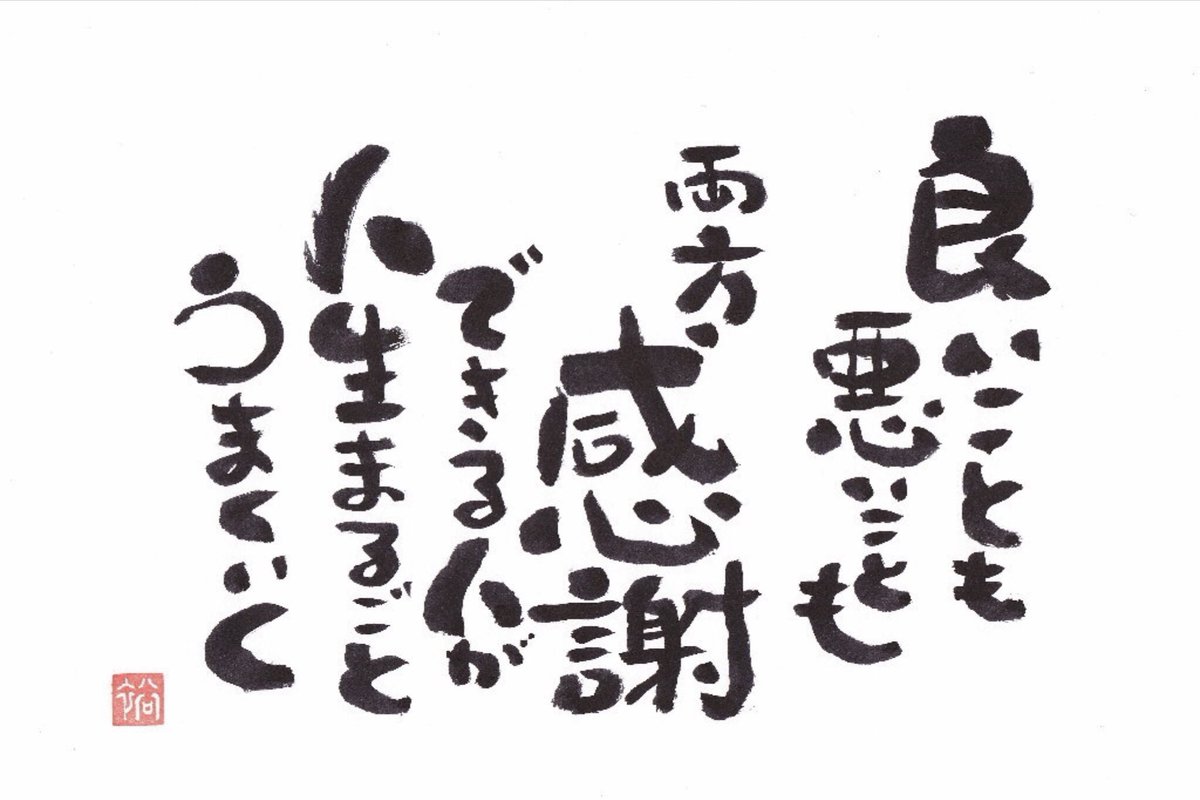 良いことも
悪いことも
両方、
感謝
できる人が
人生まるごと
うまくいく
裕